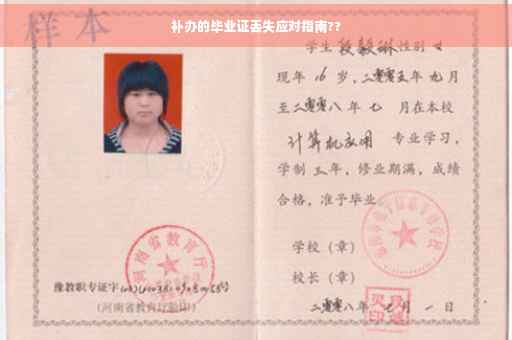 补办的毕业证丢失应对指南??
样本
学生段毅琳性别女
现年16岁,二零零五年九月
至二零零八年七月在本校
计算机应用 专业学习,
学制三年,修业期满,成绩
合格,准予毕业。
学校(章)
校长(章)
二零零八年七月一日
河南省教育厅
豫教职专证字
(河南省教育厅验印)